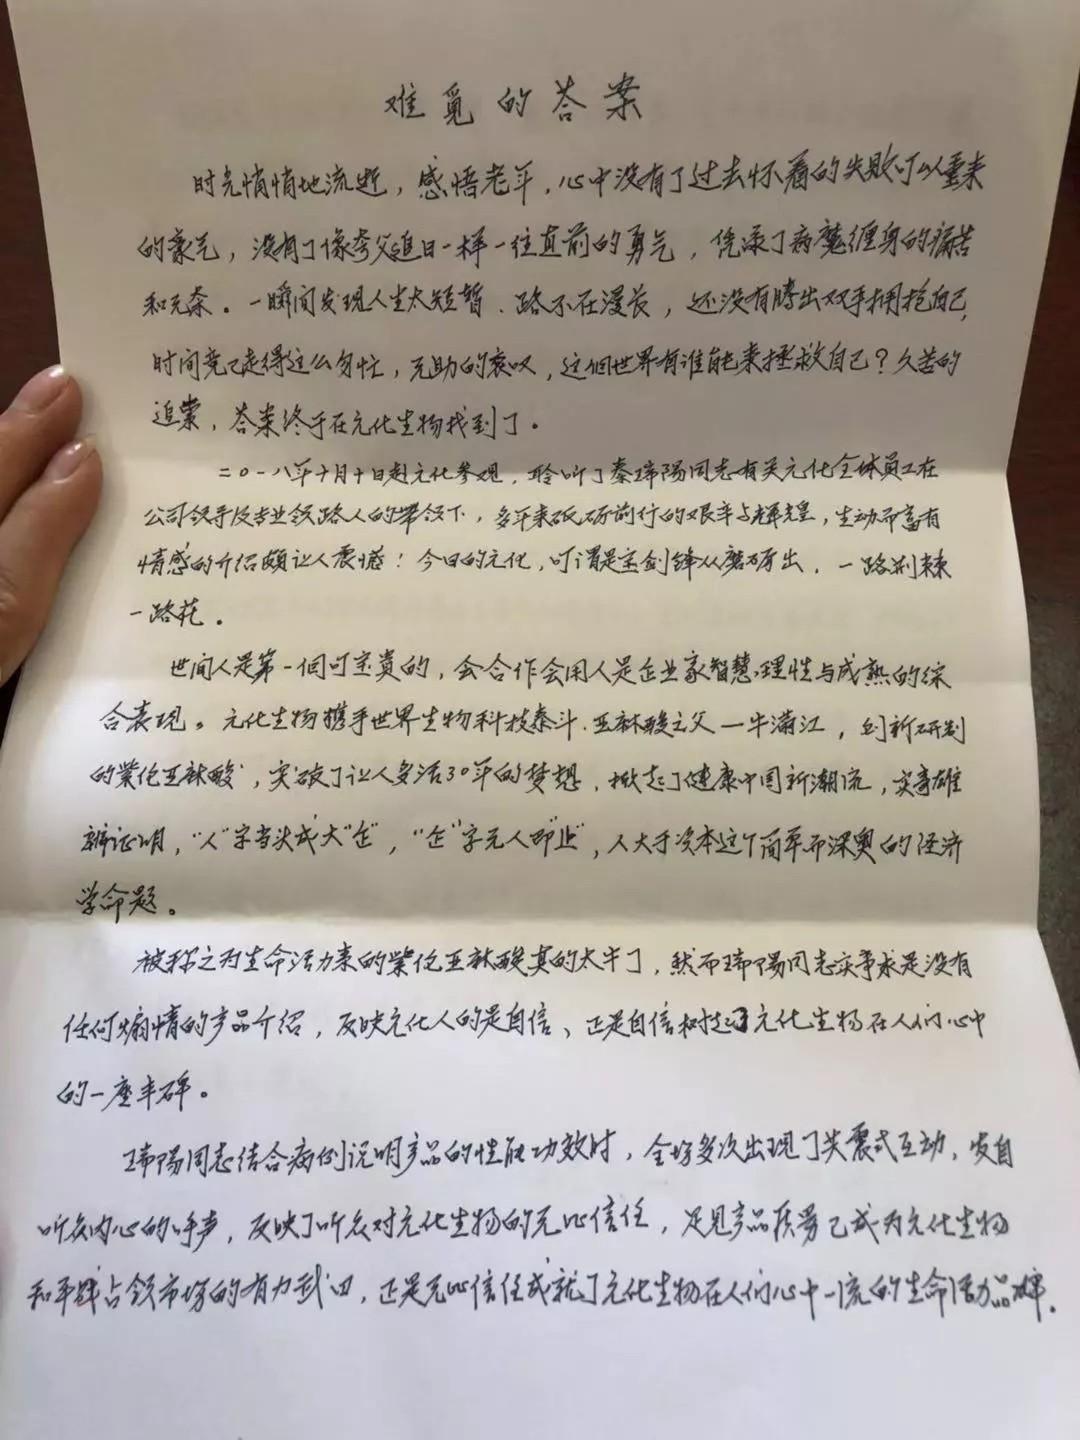 难觅的答案
时光悄悄地流逝，感悟老年，心中没有了过去怀着的失败可以重来
的豪气，没有了像夸父追日一样一往直前的勇气，凭添了病魔缠身的痛苦
和无奈。一瞬间发现人生太短暂、路不在漫长，还没有腾出双手拥抱自己，
时间竟已走得这么匆忙，无助的哀叹，这个世界有谁能来拯救自己？久苦的
追索，答案终于在元化生物找到了。
二〇一八年十月十日赴元化参观，聆听了秦瑞陽同志有关元化全体员工在
公司领导及专业领路人的带领下，多年来砥砺前行的艰辛与辉煌，生动而富有
情感的介绍颇让人震憾！今日的元化，可谓是宝剑锋从磨砺出，一路荆棘
一路花。
世间人是第一个可宝贵的，会合作会用人是企业家智慧、理性与成熟的综
合表现。元化生物携手世界生物科技泰斗、亚麻酸之父一牛满江，创新研制
的紫伦亚麻酸，突破了让人多活30年的梦想，掀起了健康中国新潮流，实着雄
辩证明，“人”字当头成大“企”，“企”字无人即“止”，人大于资本这个简单而深奥的经济
学命题。
被称之为生命活力素的紫伦亚麻酸真的太牛了，然而瑞陽同志实事求是没有
任何煽情的产品介绍，反映元化人的是自信、正是自信树起了元化生物在人们心中
的一座丰碑。
瑞陽同志结合病例说明产品的性能功效时，全场多次出现了共震式互动，发自
听众内心的呼声，反映了听众对元化生物的无比信任，足见产品质量已成为元化生物
和平战占领市场的有力武口，正是无比信任成就了元化生物在人们心中一流的生命活力品牌.